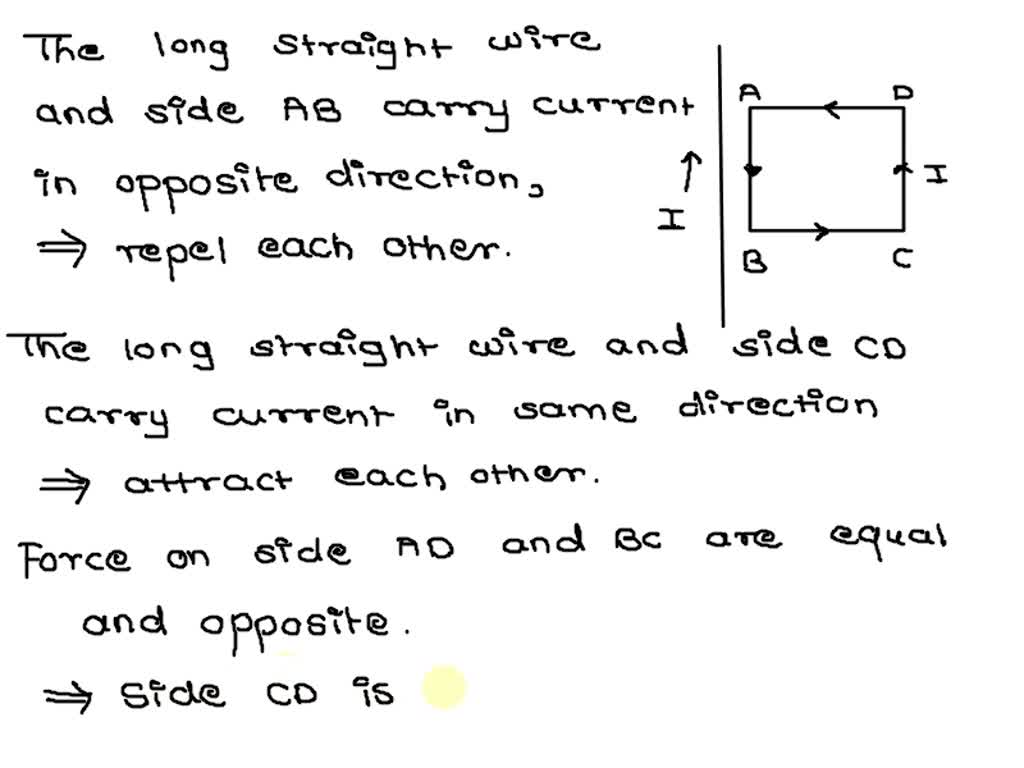 The long straight wire
and side AB carry current
in opposite direction,
⇒ repel each other.
A D
I I
B C
The long straight wire and side CD
carry current in same direction
⇒ attract each other.
Force on side AD and BC are equal
and opposite.
⇒ side CD is